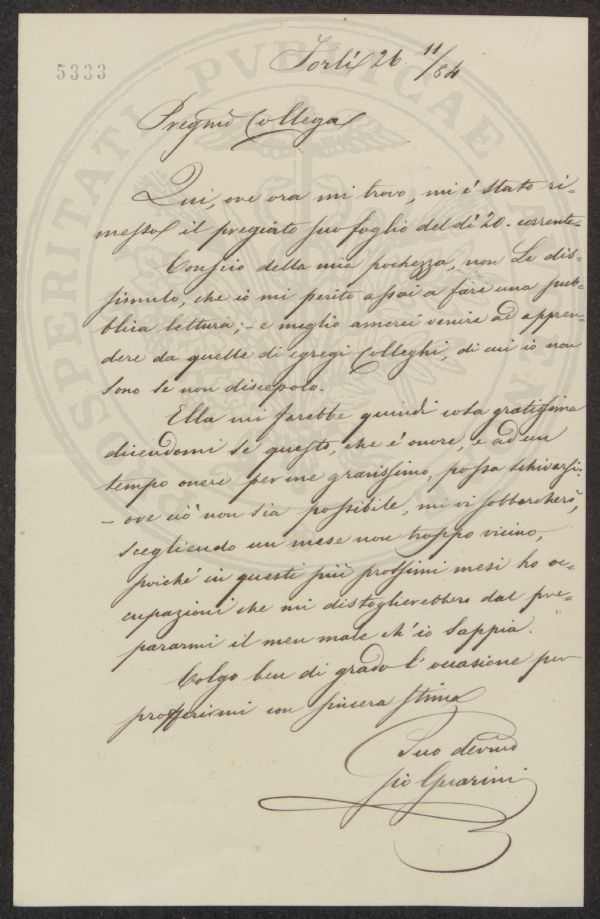 5333
Forlì 26 11/84
Pregmo Collega
Qui, ove ora mi trovo, mi è stato ri=
messo il pregiato suo foglio del dì 20. corrente.
Conscio della mia pochezza, non Le dis=
simulo, che io mi perito assai a fare una pub=
blica lettura; - e meglio amerei venire ad appren=
dere da quelle di egregi Colleghi, di cui io non
sono se non discepolo.
Ella mi farebbe quindi cosa gratissima
dicendomi se questo, che è onore, e ad un
tempo onere per me gravissimo, possa schivarsi:
- ove ciò non sia possibile, mi vi sobbarcherò,
scegliendo un mese non troppo vicino,
poiché in questi più prossimi mesi ho oc=
cupazioni che mi distoglierebbero dal pre=
pararmi il men male ch'io sappia.
Colgo ben di grado l'occasione per
profferirmi con sincera stima
Suo devmo
Guarini
PROSPERITATI PVBLICAE